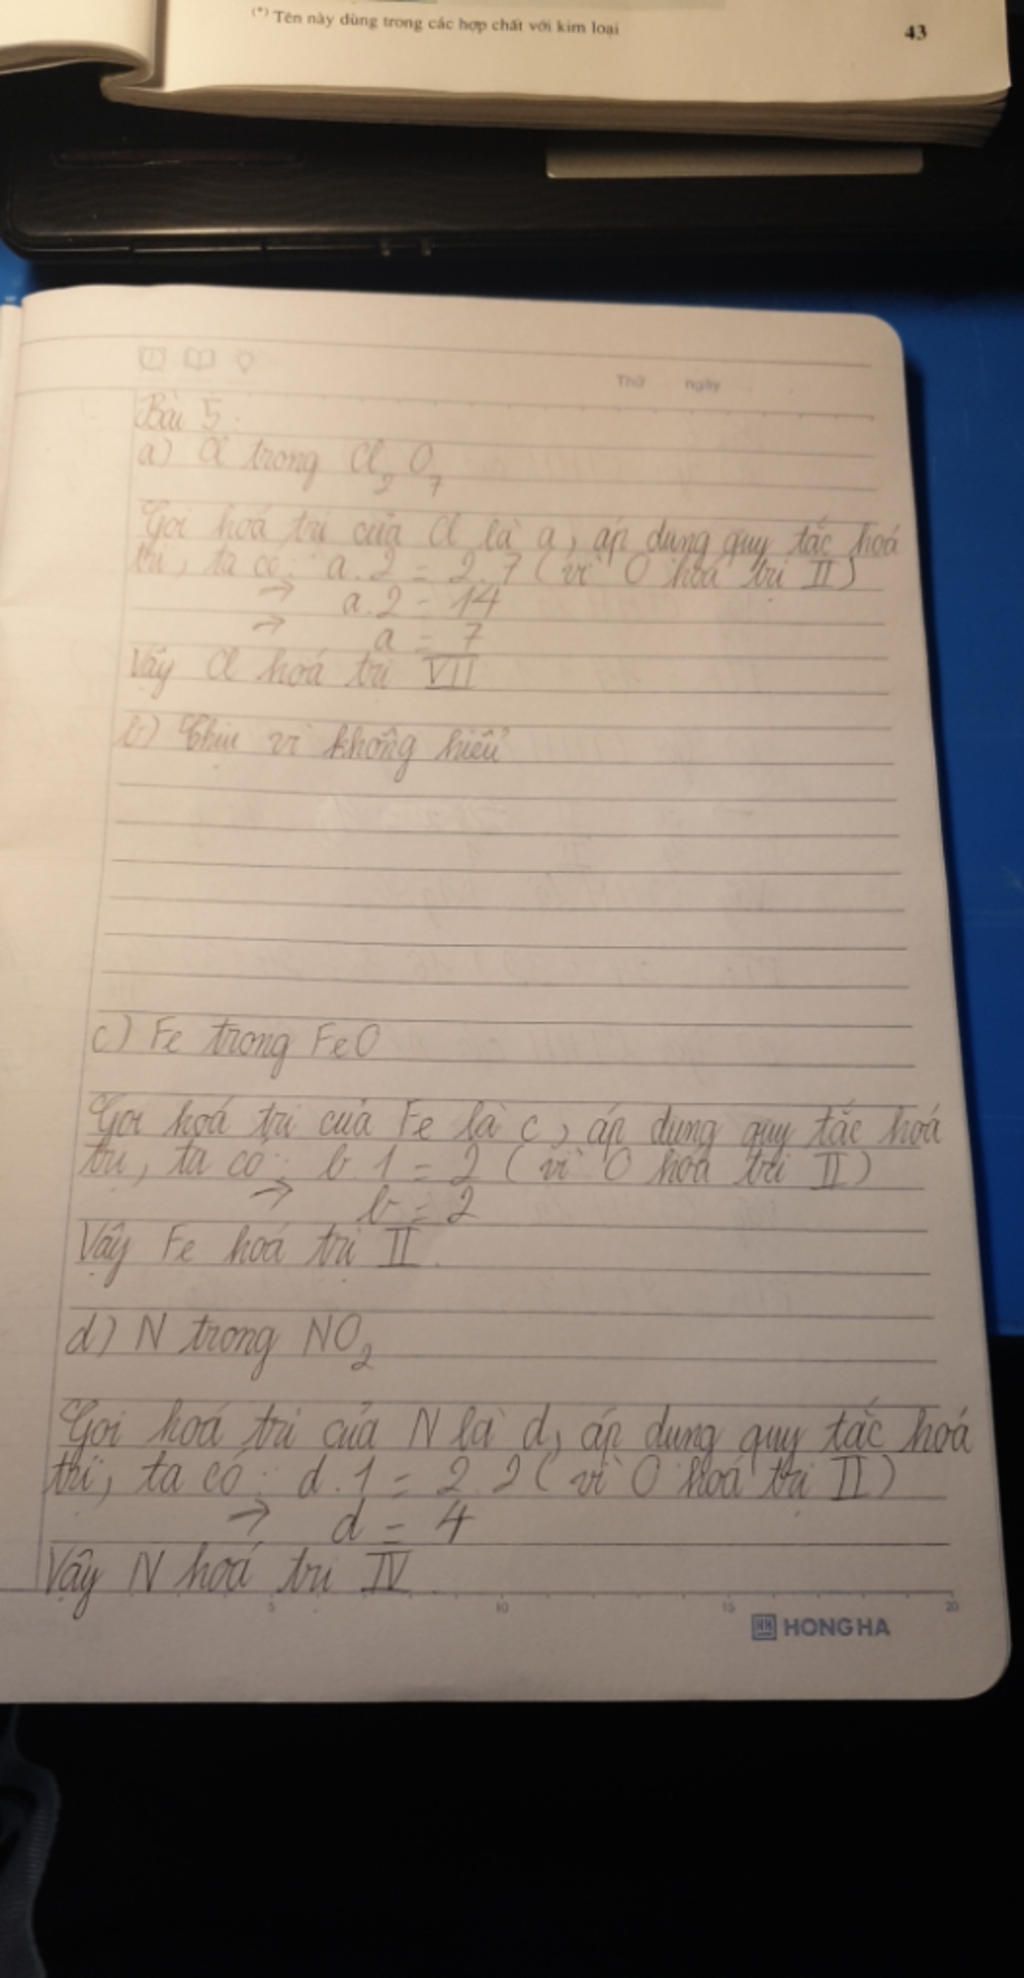 (*) Tên này dùng trong các hợp chất với kim loại
43
Thứ ngày
Bài 5:
a) Cl trong Cl₂O₇
Gọi hoá trị của Cl là a, áp dụng quy tắc hoá
trị, ta có: a.2 = 2.7 (vì O hoá trị II)
→ a.2 = 14
→ a = 7
Vậy Cl hoá trị VII
b) Chịu vì không hiểu
c) Fe trong FeO
Gọi hoá trị của Fe là c, áp dụng quy tắc hoá
trị, ta có: b.1 = 2 (vì O hoá trị II)
→ b = 2
Vậy Fe hoá trị II.
d) N trong NO₂
Gọi hoá trị của N là d, áp dụng quy tắc hoá
trị, ta có: d.1 = 2.2 (vì O hoá trị II)
→ d = 4
Vậy N hoá trị IV.
5 10 15 20
HH HONG HA